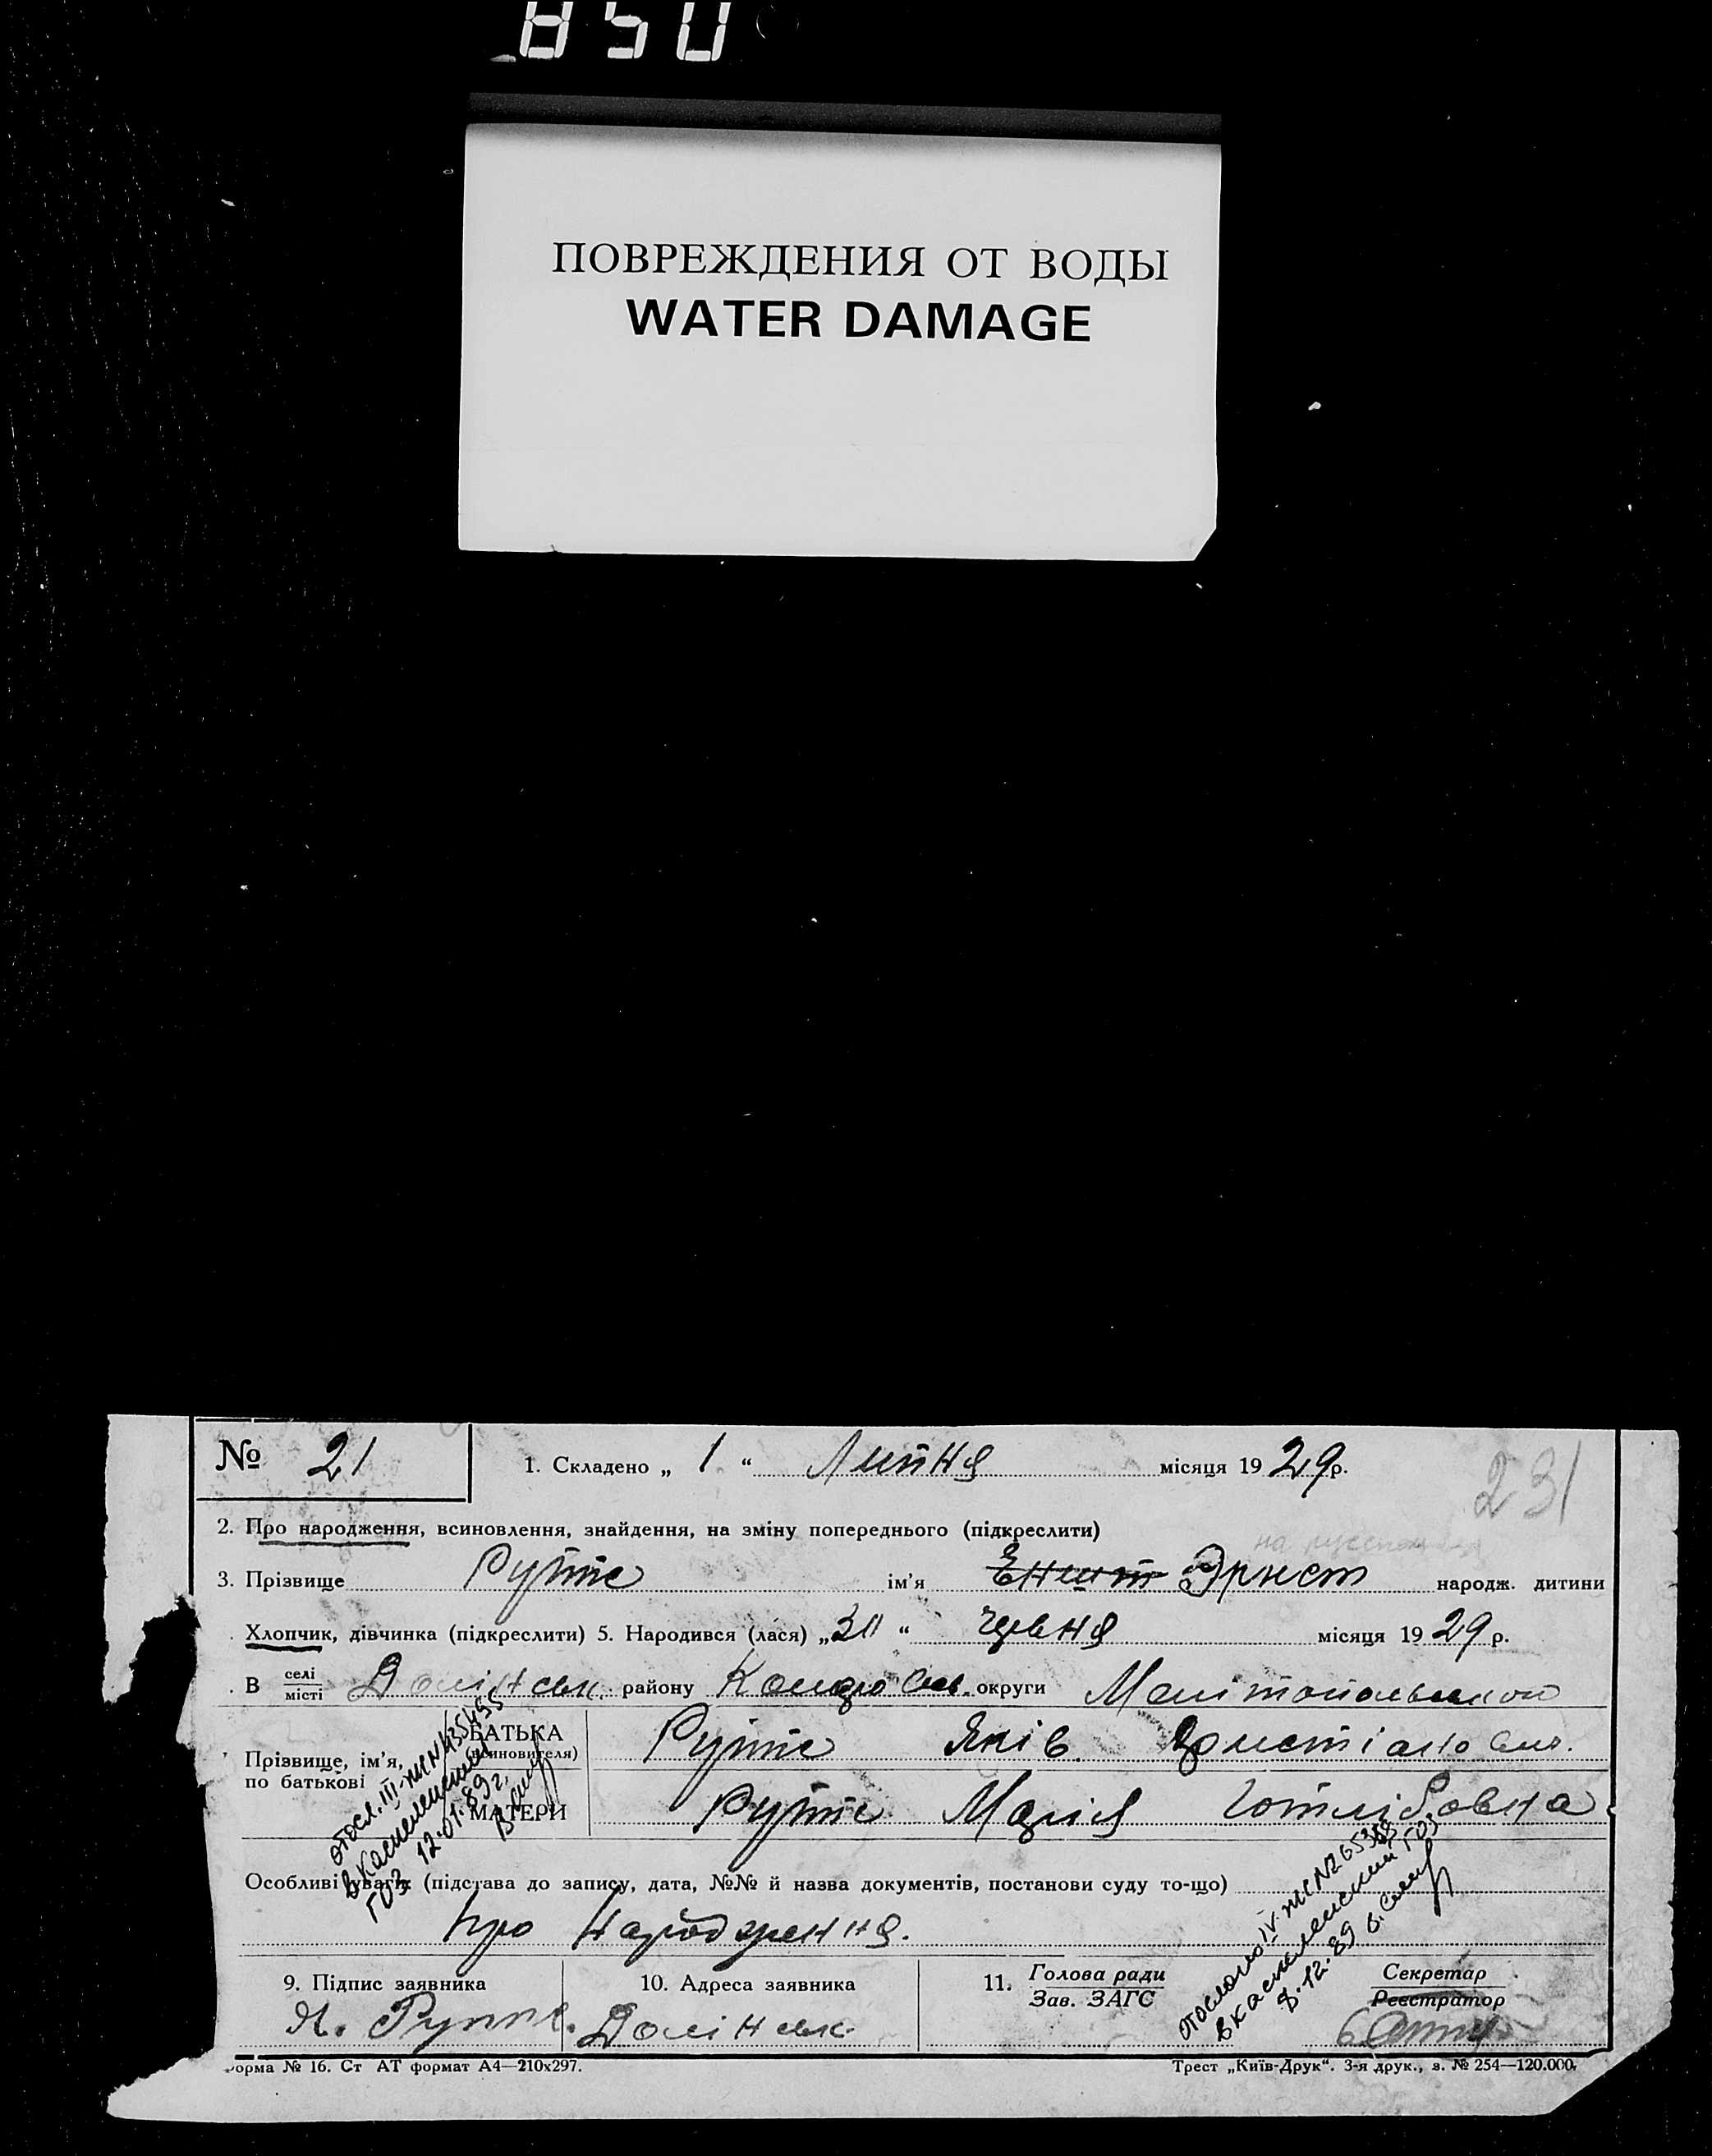 850
ПОВРЕЖДЕНИЯ ОТ ВОДЫ
WATER DAMAGE
№ 21
1. Складено „ 1 “ Липня місяця 1929р.
231
2. Про народження, всиновлення, знайдення, на зміну попереднього (підкреслити)
3. Прізвище Руппе ім'я Эрнест народж. дитини
Хлопчик, дівчинка (підкреслити) 5. Народився (лася) „ “ червня місяця 1929 р.
В селі місті Долінськ. району округи Мелітопольської
Прізвище, ім'я, по батькові
БАТЬКА (всиновителя) Руппе Яків
МАТЕРИ Руппе Марія Готлібовна
отосл. III
12.01.89г.
Особливі уваги: (підстава до запису, дата, №№ й назва документів, постанови суду то-що)
Про Народження.
8.12.89
9. Підпис заявника
Я. Руппе.
10. Адреса заявника
Долінськ.
11. Голова ради
Зав. ЗАГС
Секретар
Реєстратор
орма № 16. Ст АТ формат А4—210х297.
Трест „Київ-Друк“. 3-я друк., з. № 254—120.000.